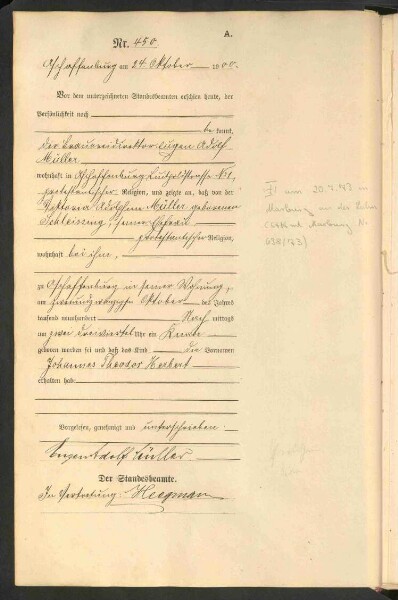 A.
Nr. 450
Aschaffenburg am 24. Oktober 1900.
Vor dem unterzeichneten Standesbeamten erschien heute, der
Persönlichkeit nach
be kannt,
der Brauereidirektor Eugen Adolf
Müller
wohnhaft in Aschaffenburg Luitpoldstrasse No 1,
protestantischer Religion, und zeigte an, daß von der
Viktoria Müller geborenen
seiner Ehefrau
protestantischer Religion,
wohnhaft bei ihm,
zu Aschaffenburg in seiner Wohnung,
am Oktober des Jahres
tausend neunhundert Nach mittags
um zwei dreiviertel Uhr ein Knabe
geboren worden sei und daß das Kind die Vornamen
Johannes Theodor Herbert
erhalten habe
Vorgelesen, genehmigt und unterschrieben
Eugen Adolf Müller
Der Standesbeamte.
In Vertretung: Heegmann
am 20.7.43 in
Marburg an der Lahn
Marburg Nr.
638/43)